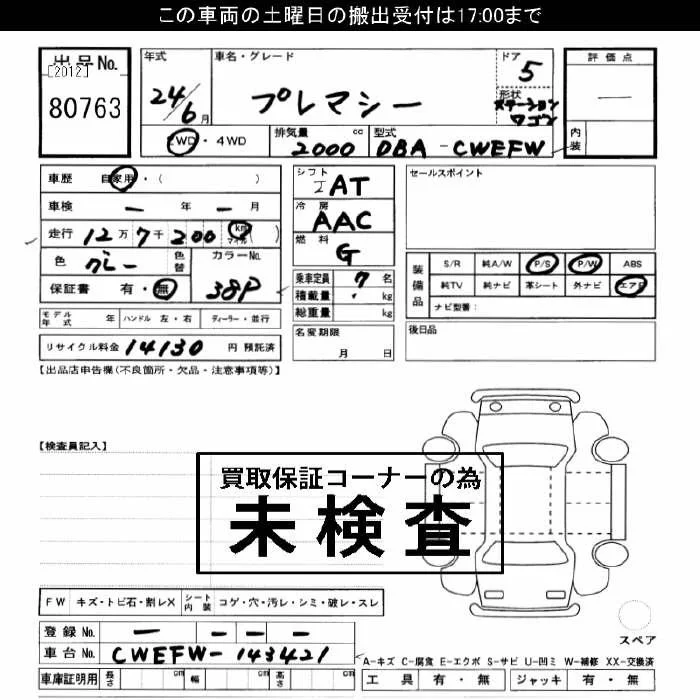 この車両の土曜日の搬出受付は17:00まで
出品No.
[2012]
80763
年式
24/6月
車名・グレード
プレマシー
ドア
5
形状
ステーションワゴン
評価点
—
内装
2WD・4WD
排気量 2000 cc
型式 DBA-CWEFW
車歴 自家用・( )
車検 — 年 — 月
走行 12万7千200 km マイル ( )
色 グレー 色替
カラーNo. 38P
保証書 有・無
モデル年式 年 ハンドル 左・右 ディーラー・並行
リサイクル料金 14130 円 預託済
シフト IAT
冷房 AAC
燃料 G
乗車定員 7 名
積載量 ・ kg
総重量 kg
名変期限
月 日
セールスポイント
装備品
S/R 純A/W P/S P/W ABS
純TV 純ナビ 革シート 外ナビ エアB
ナビ型番:
後日品
【出品店申告欄(不良箇所・欠品・注意事項等)】
【検査員記入】
買取保証コーナーの為
未検査
FW キズ・トビ石・割レX シート内装 コゲ・穴・汚レ・シミ・破レ・スレ
登録No. — — — —
車台No. CWEFW-143421
車庫証明用 長さ cm 幅 cm 高さ cm
スペア
A-キズ C-腐食 E-エクボ S-サビ U-凹ミ W-補修 XX-交換済
工具 有・無 ジャッキ 有・無